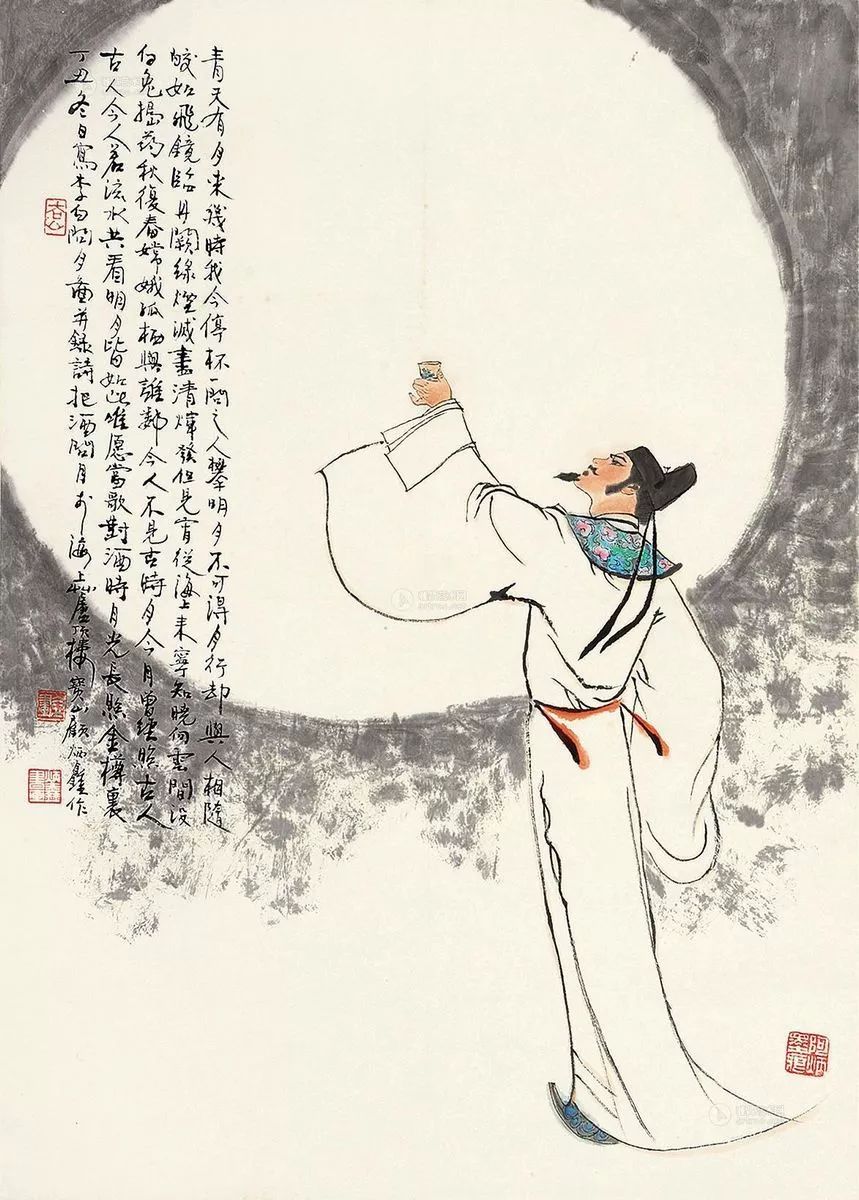 青天有月来幾時我今停杯一問之人攀明月不可得月行却與人相隨
皎如飛鏡臨丹闕緑煙滅盡清煇發但見宵從海上来寧知曉向雲間没
白兔搗药秋復春嫦娥孤栖與誰鄰今人不見古時月今月曾經照古人
古人今人若流水共看明月皆如此唯愿當歌對酒時月光長照金樽裏
丁丑冬日寫李白問月圖并録詩把酒問月於海上蘆樓寶山顧炳鑫作